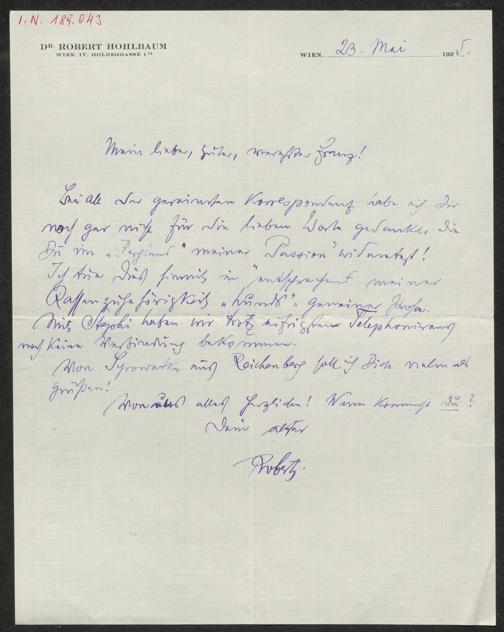 I.N. 189.043
DR. ROBERT HOHLBAUM
WIEN, IV. GOLDEGGASSE 1
WIEN, 23. Mai 1925.
Mein lieber, guter, Franz!
Bei all der gereimten Korrespondenz habe ich Dir
noch gar nicht für die lieben Worte gedankt, die
Du im " meiner "Passion" widmetest!
Ich tue dies hiermit in entsprechend meiner
Rassenzugehörigkeit "hunds"= gemeiner Prosa.
Mit haben wir trotz eifrigsten Telephonierens
noch keine Verbindung bekommen.
Von aus Reichenberg soll ich Dich vielmals
grüßen!
Von uns alles Herzliche! Wann kommst Du?
Dein alter
Robert.